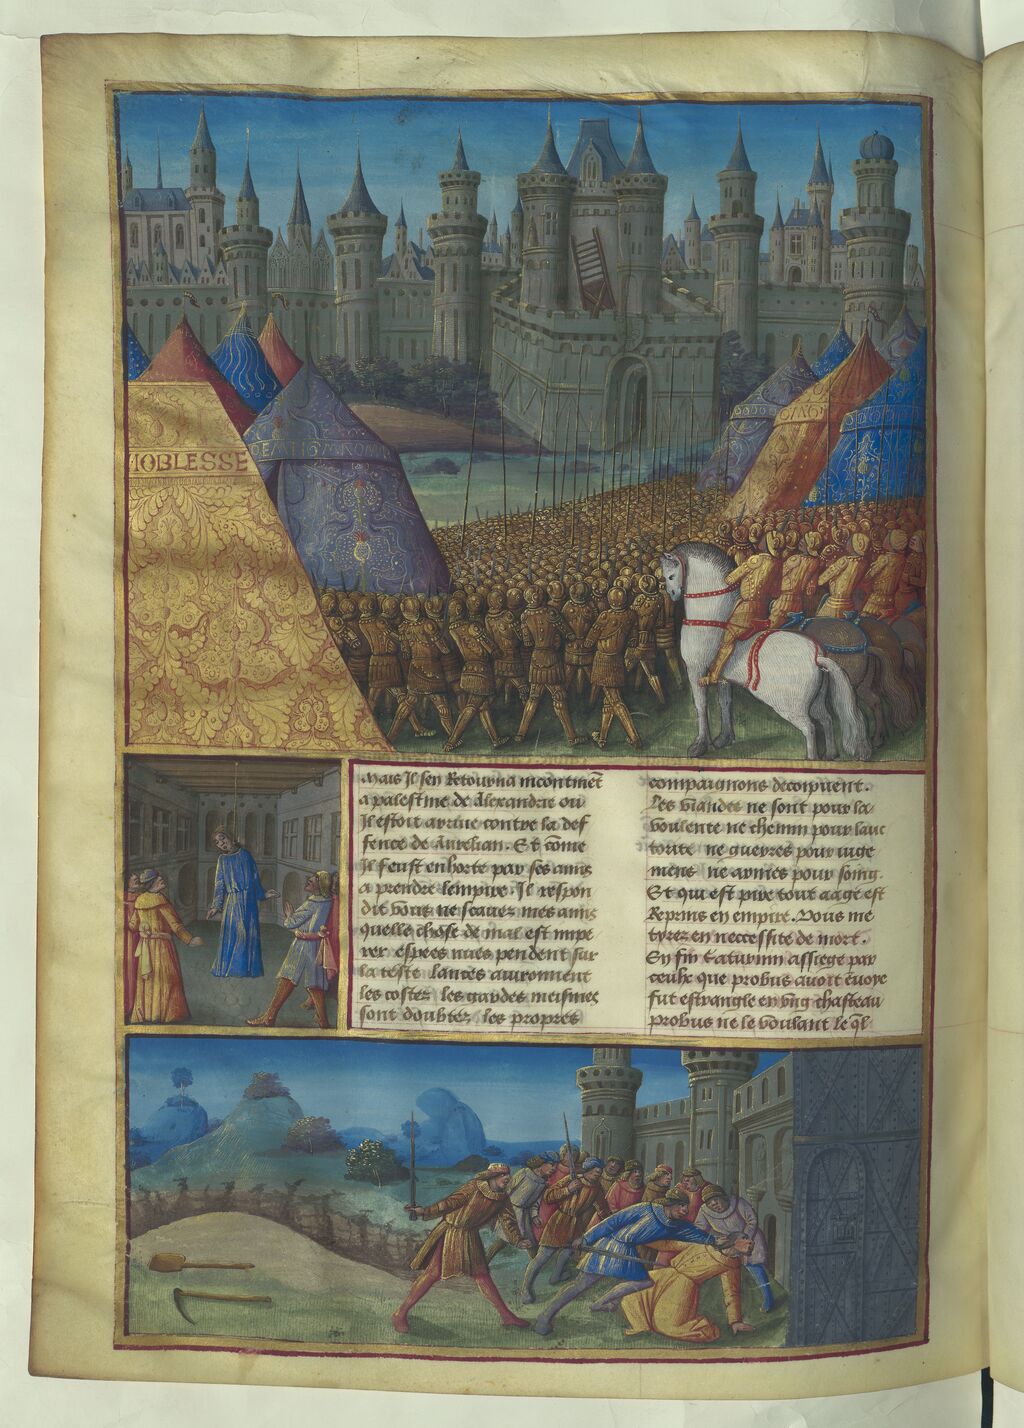 NOBLESSE
Mais Il sen Retourna incontinēt
a palestine de Alexandrie ou
Il estoit arriue contre la def
fence de Aurelian. Et cōme
Il feust enhorte par ses amis
a prendre lempire. Il respon
dit vous ne scauez mes amis
quelle chose de mal est impe
rer espees nues pendent sur
la teste lances auironnent
les costez les gardes mesmes
sont doubtez les propres
compaignons decoipuent.
Les viandes ne sont pour la
voulente ne chemin pour lauc
torite ne guerres pour iuge
ment ne armes pour soing.
Et qui est pire tout aage est
Reprins en empire. Vous me
tyrez en neccessite de mort.
En fin Saturnin assiege par
ceulx que probus auoit ēuoye
fut estrangle en vng chasteau
probus ne le voulant le ql